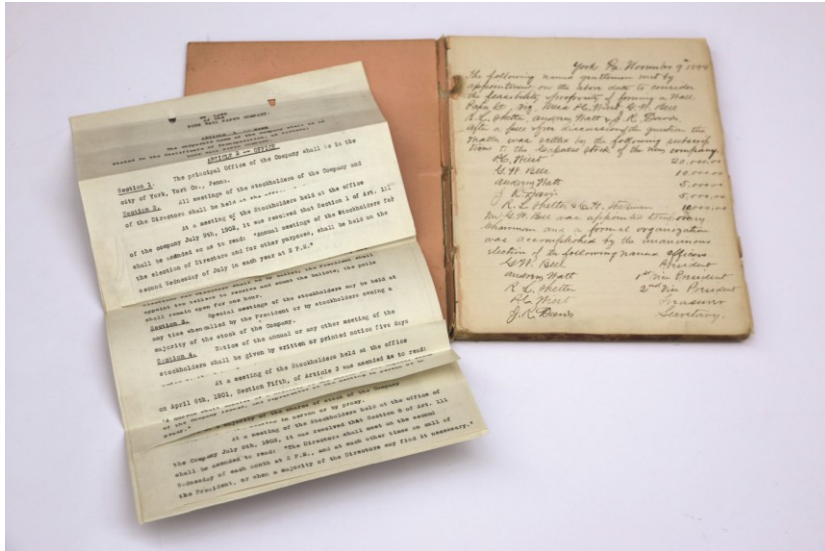 YORK WALL PAPER COMPANY.
ARTICLE 1 - NAME
The corporate name of the Company shall be as
stated in the Certificate of Incorporation, to
ARTICLE 2 - OFFICE
Section 1. The principal Office of the Company shall be in the
city of York, York Co., Penna.
Section 2. All meetings of the stockholders of the Company and
of the Directors shall be held at the
At a meeting of the Stockholders held at the office
of the company July 9th, 1902, it was resolved that Section 1 of Art. 111
shall be amended so as to read: "Annual meetings of the Stockholders for
the election of Directors and for other purposes, shall be held on the
second Wednesday of July in each year at 2 P.M."
shall be by ballot; the President shall
appoint two tellers to receive and count the ballots; the polls
shall remain open for one hour.
Section 3. Special meetings of the stockholders may be held at
any time when called by the President or by stockholders owning a
majority of the stock of the Company.
Section 4. Notice of the annual or any other meeting of the
stockholders shall be given by written or printed notice five days
At a meeting of the Stockholders held at the office
on April 6th, 1901, Section Fifth, of Article 3 was amended to read:
of the shares of stock of the Company
in person or by proxy.
At a meeting of the Stockholders held at the office of
the Company July 9th, 1902, it was resolved that Section 8 of Art. 111
shall be amended to read: "The Directors shall meet on the second
Wednesday of each month at 2 P.M., and at such other times on call of
the President, or when a majority of the Directors may find it necessary."
York Pa. November 9th
The following named gentlemen met by
appointment on the above date to consider
the feasibility & propriety of forming a Wall
Paper Co, viz, Mess P.C. Wiest, G.W. Bell
R.L. Shetter, Andrew Watt & J.K. Davis.
After a full & free discussion of the question the
matter was settled by the following subscrip
tions to the Capital stock of the new company.
P.C. Wiest 20,000.00
G.W. Bell 10,000.00
Andrew Watt 5,000.00
J.K. Davis 5,000.00
R.L. Shetter & C.H. 10,000.00
Mr. G.W. Bell was appointed temporary
Chairman and a formal organization
was accomplished by the unanimous
election of the following named officers
G.W. Bell President
Andrew Watt 1st Vice President
R.L. Shetter 2nd Vice President
P.C. Wiest Treasurer
J.K. Davis Secretary.